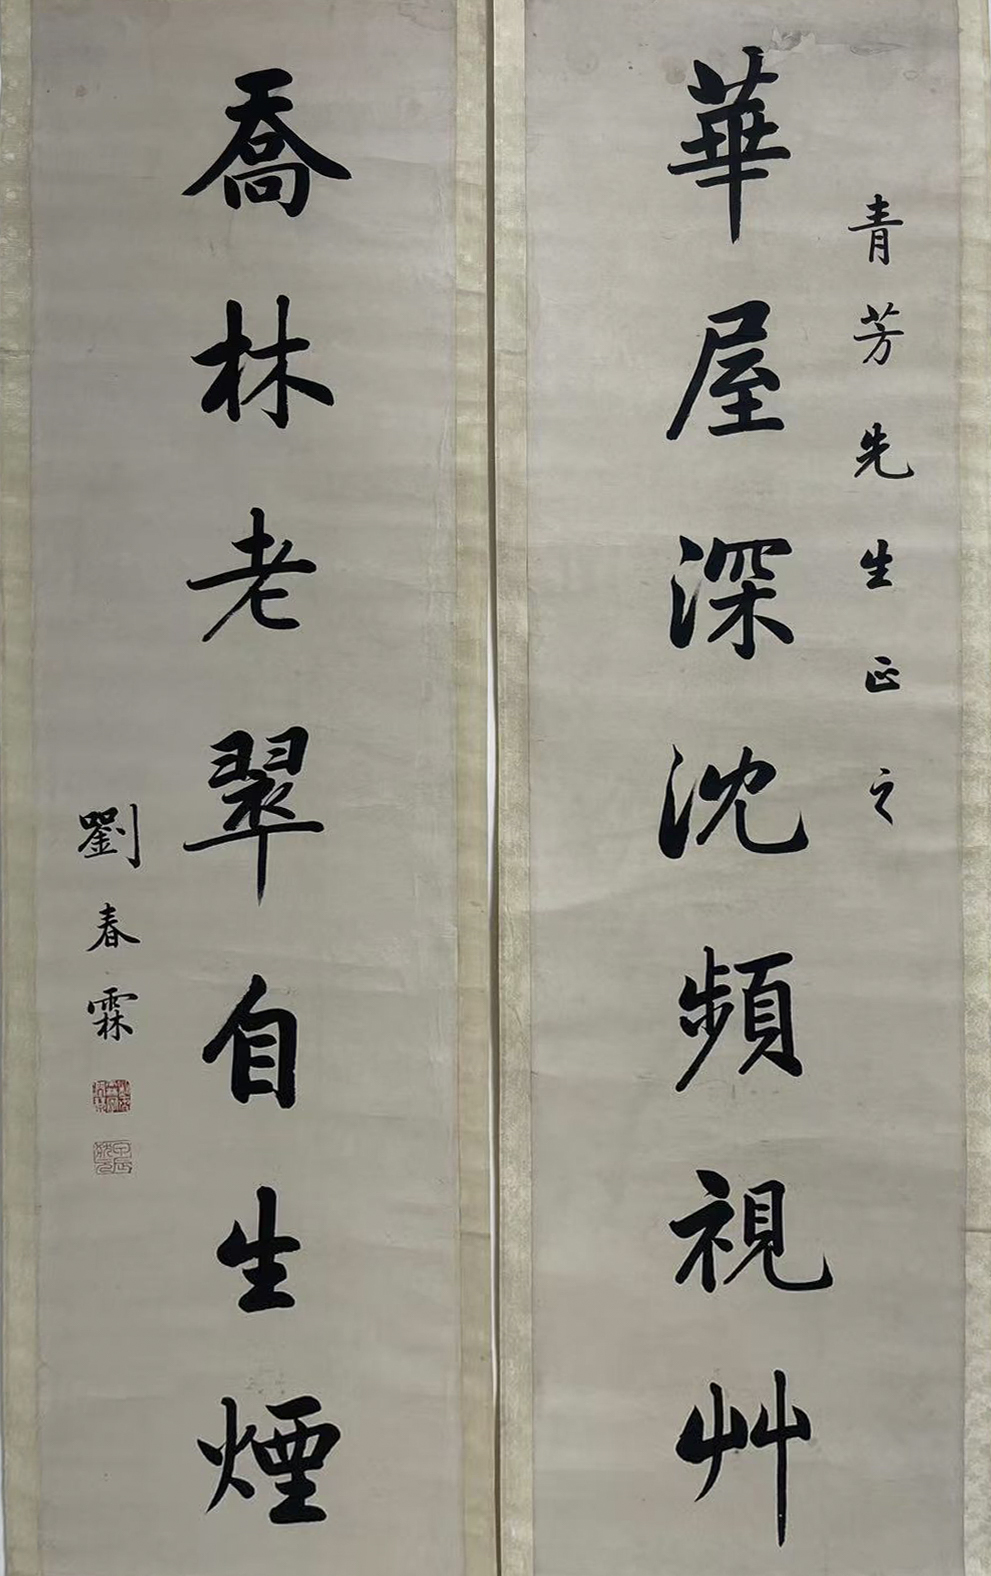 青芳先生正之
華屋深沈頻視艸
喬林老翠自生煙
劉春霖